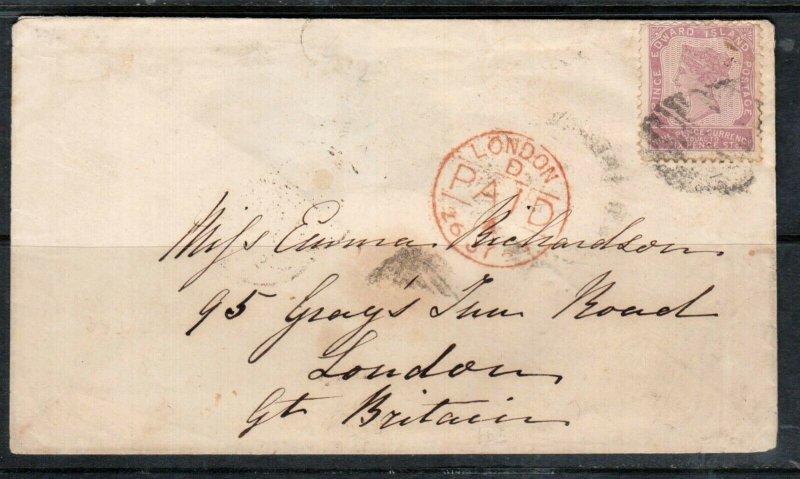 PRINCE EDWARD ISLAND POSTAGE
PENCE CURRENCY
EQUAL TO
PENCE STG
LONDON
D
PAID
Miss Emma Richardson
95 Gray's Inn Road
London
Gt Britain